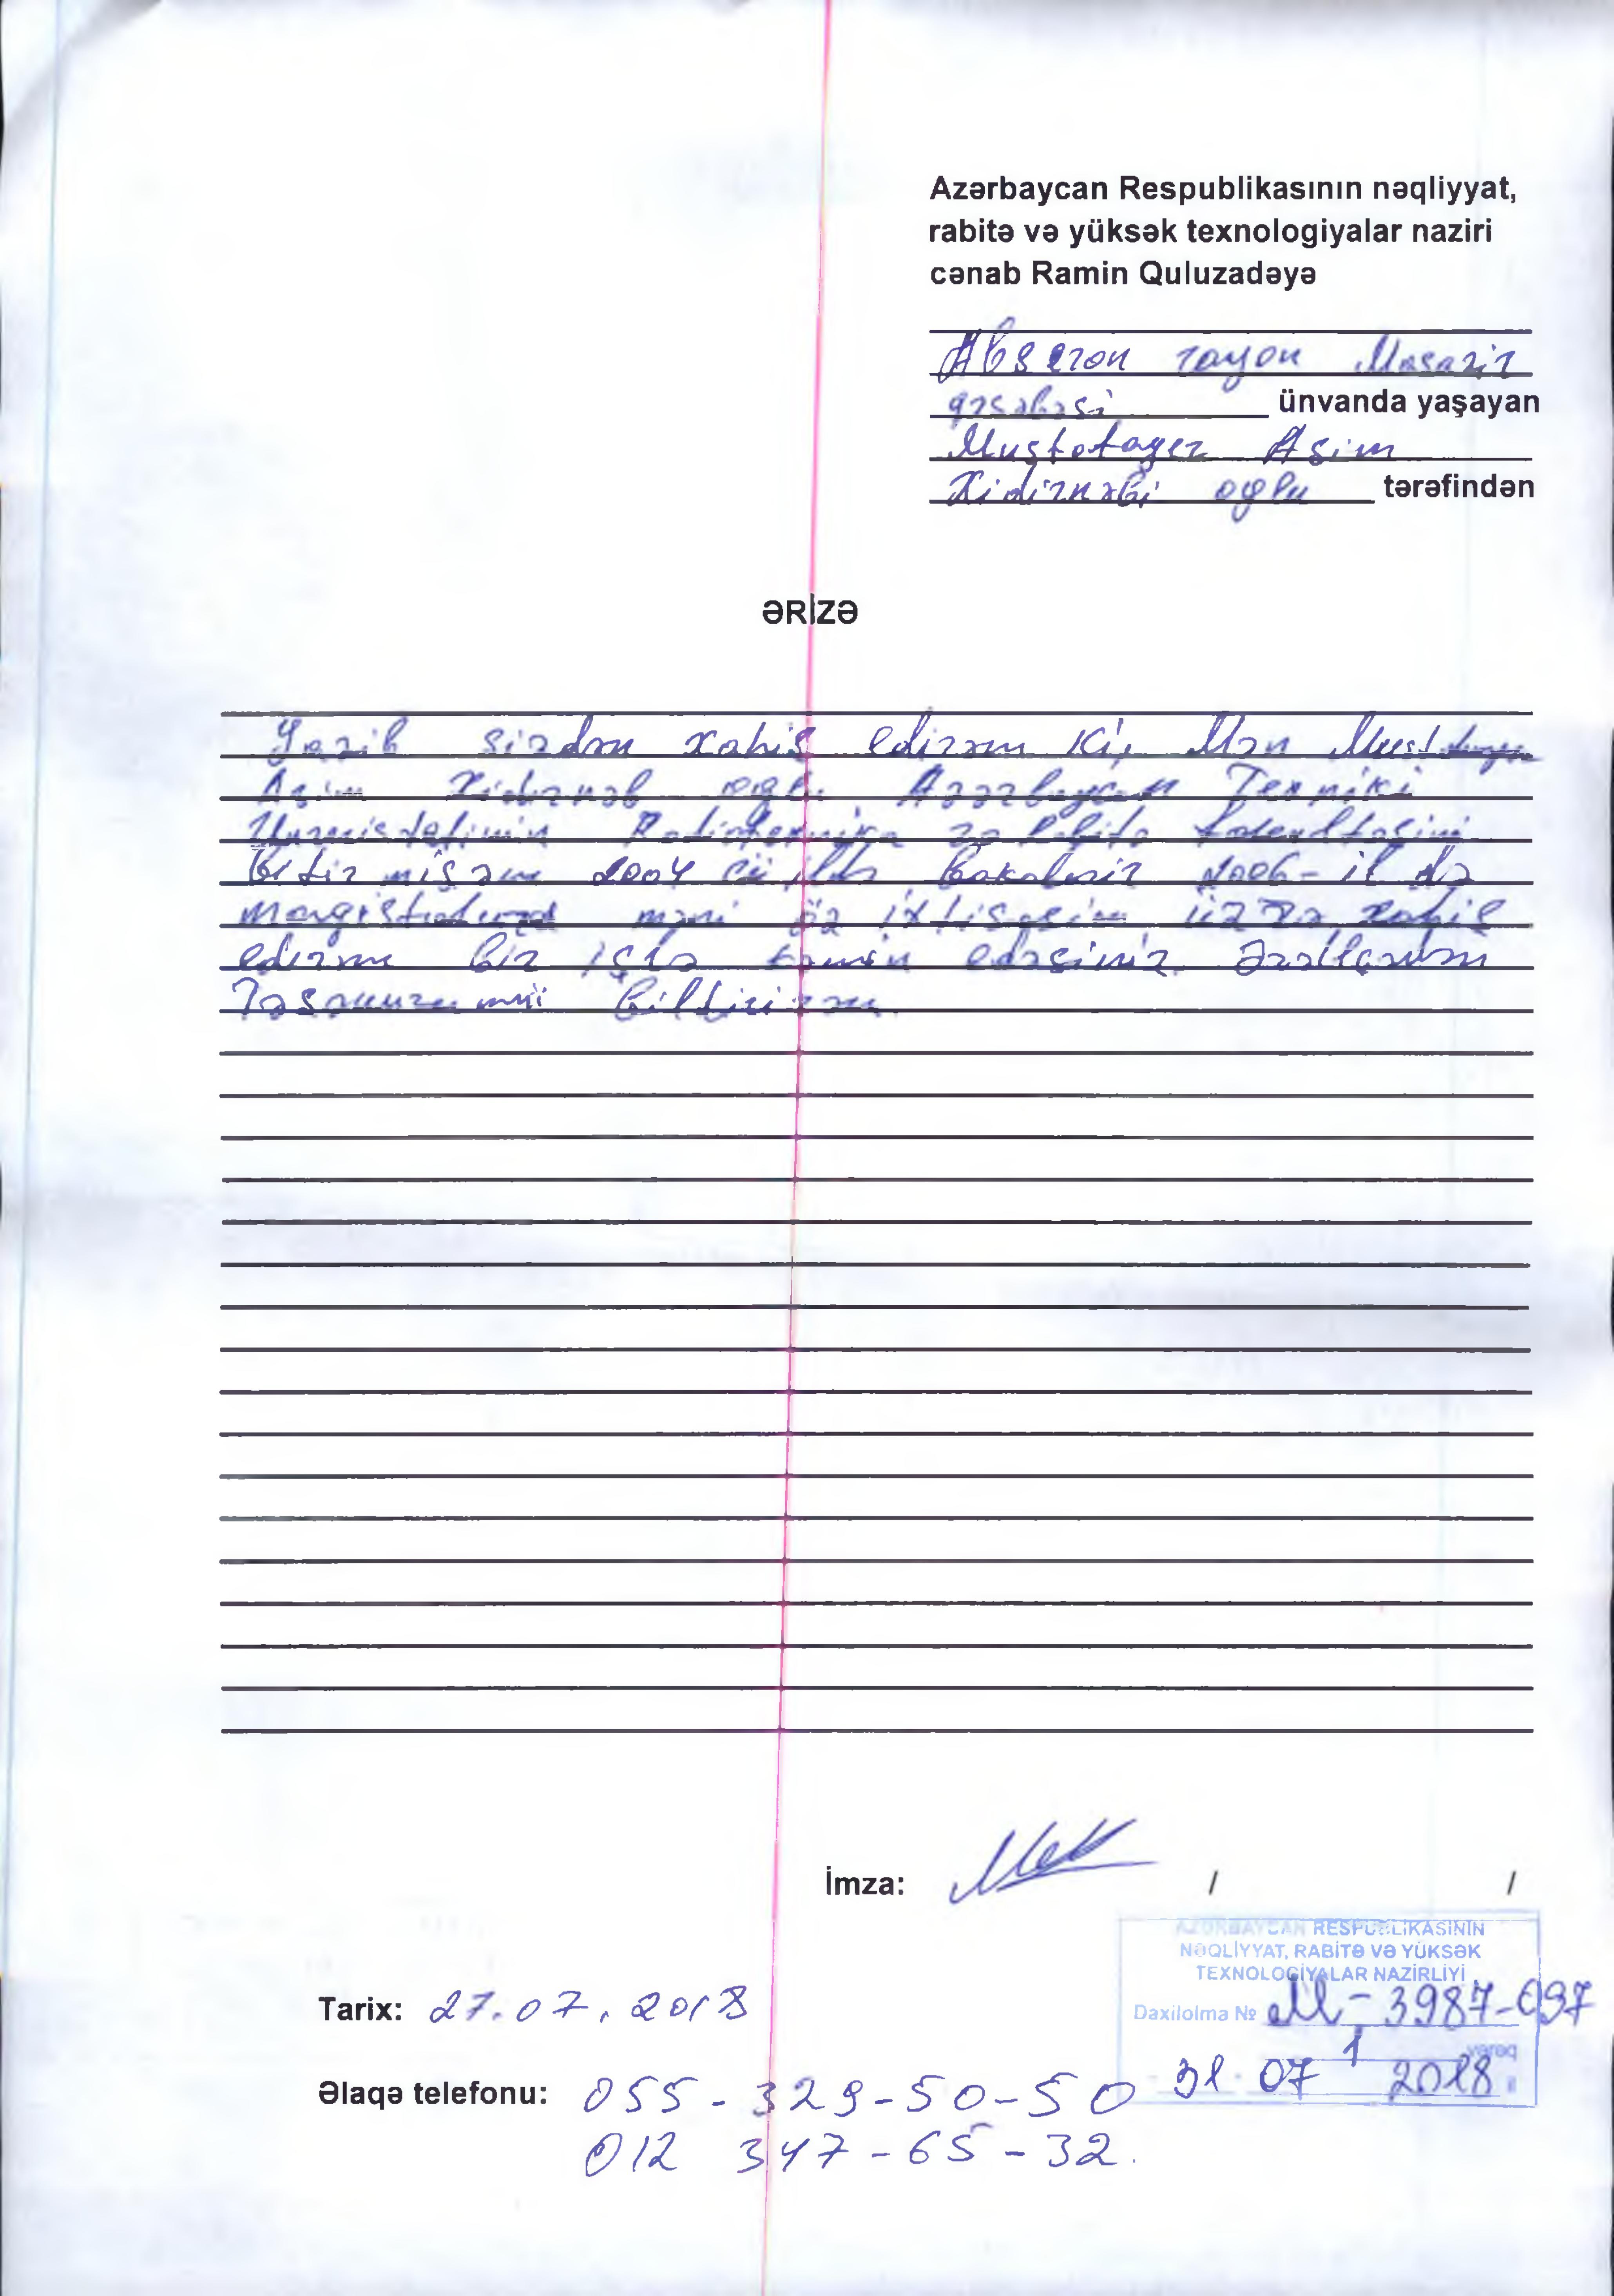 Azərbaycan Respublikasının nəqliyyat,
rabitə və yüksək texnologiyalar naziri
cənab Ramin Quluzadəyə
Abşeron rayon Masazir
qəsəbəsi ünvanda yaşayan
Mustafayev Asim
Xidirnəbi oğlu tərəfindən
ƏRİZƏ
Yazib sizdən xahiş edirəm ki, Mən
Asim oglu Azərbaycan Texniki
Radiotexnika və
bitirmişəm 2004 cü ildə bakalavir 2006-il də
məni öz ixtisasim üzrə xahiş
edirəm bir işlə təmin edəsiniz.
bildirirəm
İmza: / /
AZƏRBAYCAN RESPUBLİKASININ
NƏQLİYYAT, RABİTƏ VƏ YÜKSƏK
TEXNOLOGİYALAR NAZİRLİYİ
Daxilolma № M-3987-097
1 vərəq
31 07 2018
Tarix: 27.07.2018
Əlaqə telefonu: 055-329-50-50
012 347-65-32.